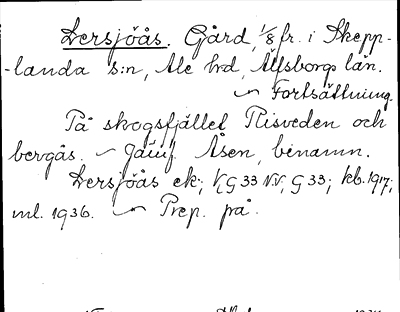 Iversjöås. Gård, 1/8 fr. i Skepp-
-landa s:n, Ale hd, Älfsborgs län.
~ Fortsättning.
På skogsfjället Risveden och
bergås. ~ Jämf. Åsen, binamn.
Iversjöås ek.; G 33 N.V.; G 33; kb. 1917;
ml. 1936. ~ Prep. på.